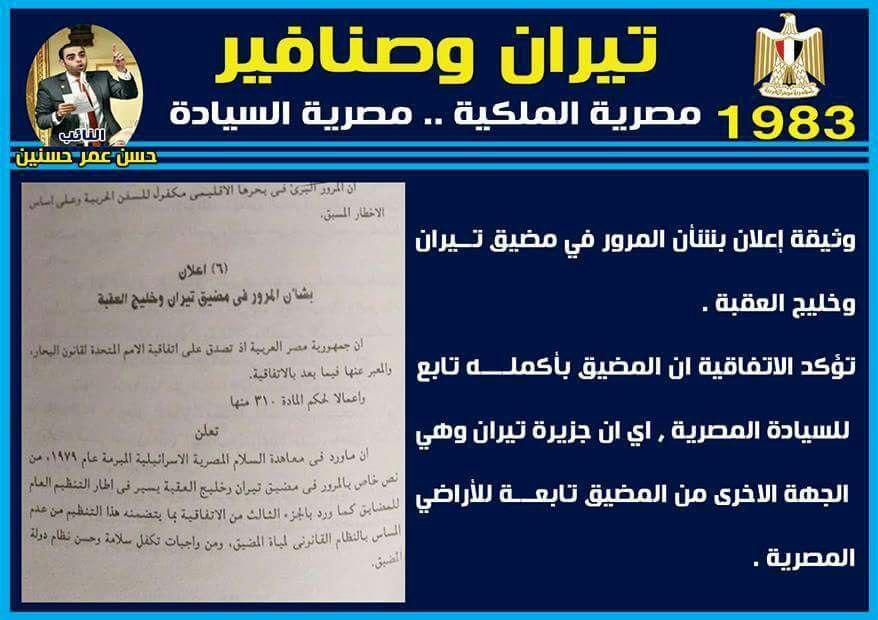 تيران وصنافير
1983 مصرية الملكية .. مصرية السيادة
النائب
حسن عمر حسنين
وثيقة إعلان بشأن المرور في مضيق تــيران
وخليج العقبة .
تؤكد الاتفاقية ان المضيق بأكملــــه تابع
للسيادة المصرية , اي ان جزيرة تيران وهي
الجهة الاخرى من المضيق تابعـــة للأراضي
المصرية .
ان المرور البرئ فى بحرها الاقليمى مكفول للسفن الحربية وعلى اساس
الاخطار المسبق.
(٦) اعلان
بشأن المرور فى مضيق تيران وخليج العقبة
ان جمهورية مصر العربية اذ تصدق على اتفاقية الامم المتحدة لقانون البحار،
والمعبر عنها فيما بعد بالاتفاقية.
واعمالا لحكم المادة ٣١٠ منها
تعلن
ان ماورد فى معاهدة السلام المصرية الاسرائيلية المبرمة عام ١٩٧٩، من
نص خاص بالمرور فى مضيق تيران وخليج العقبة يسير فى اطار التنظيم العام
للمضايق كما ورد بالجزء الثالث من الاتفاقية بما يتضمنه هذا التنظيم من عدم
المساس بالنظام القانونى لمياة المضيق، ومن واجبات تكفل سلامة وحسن نظام دولة
المضيق.